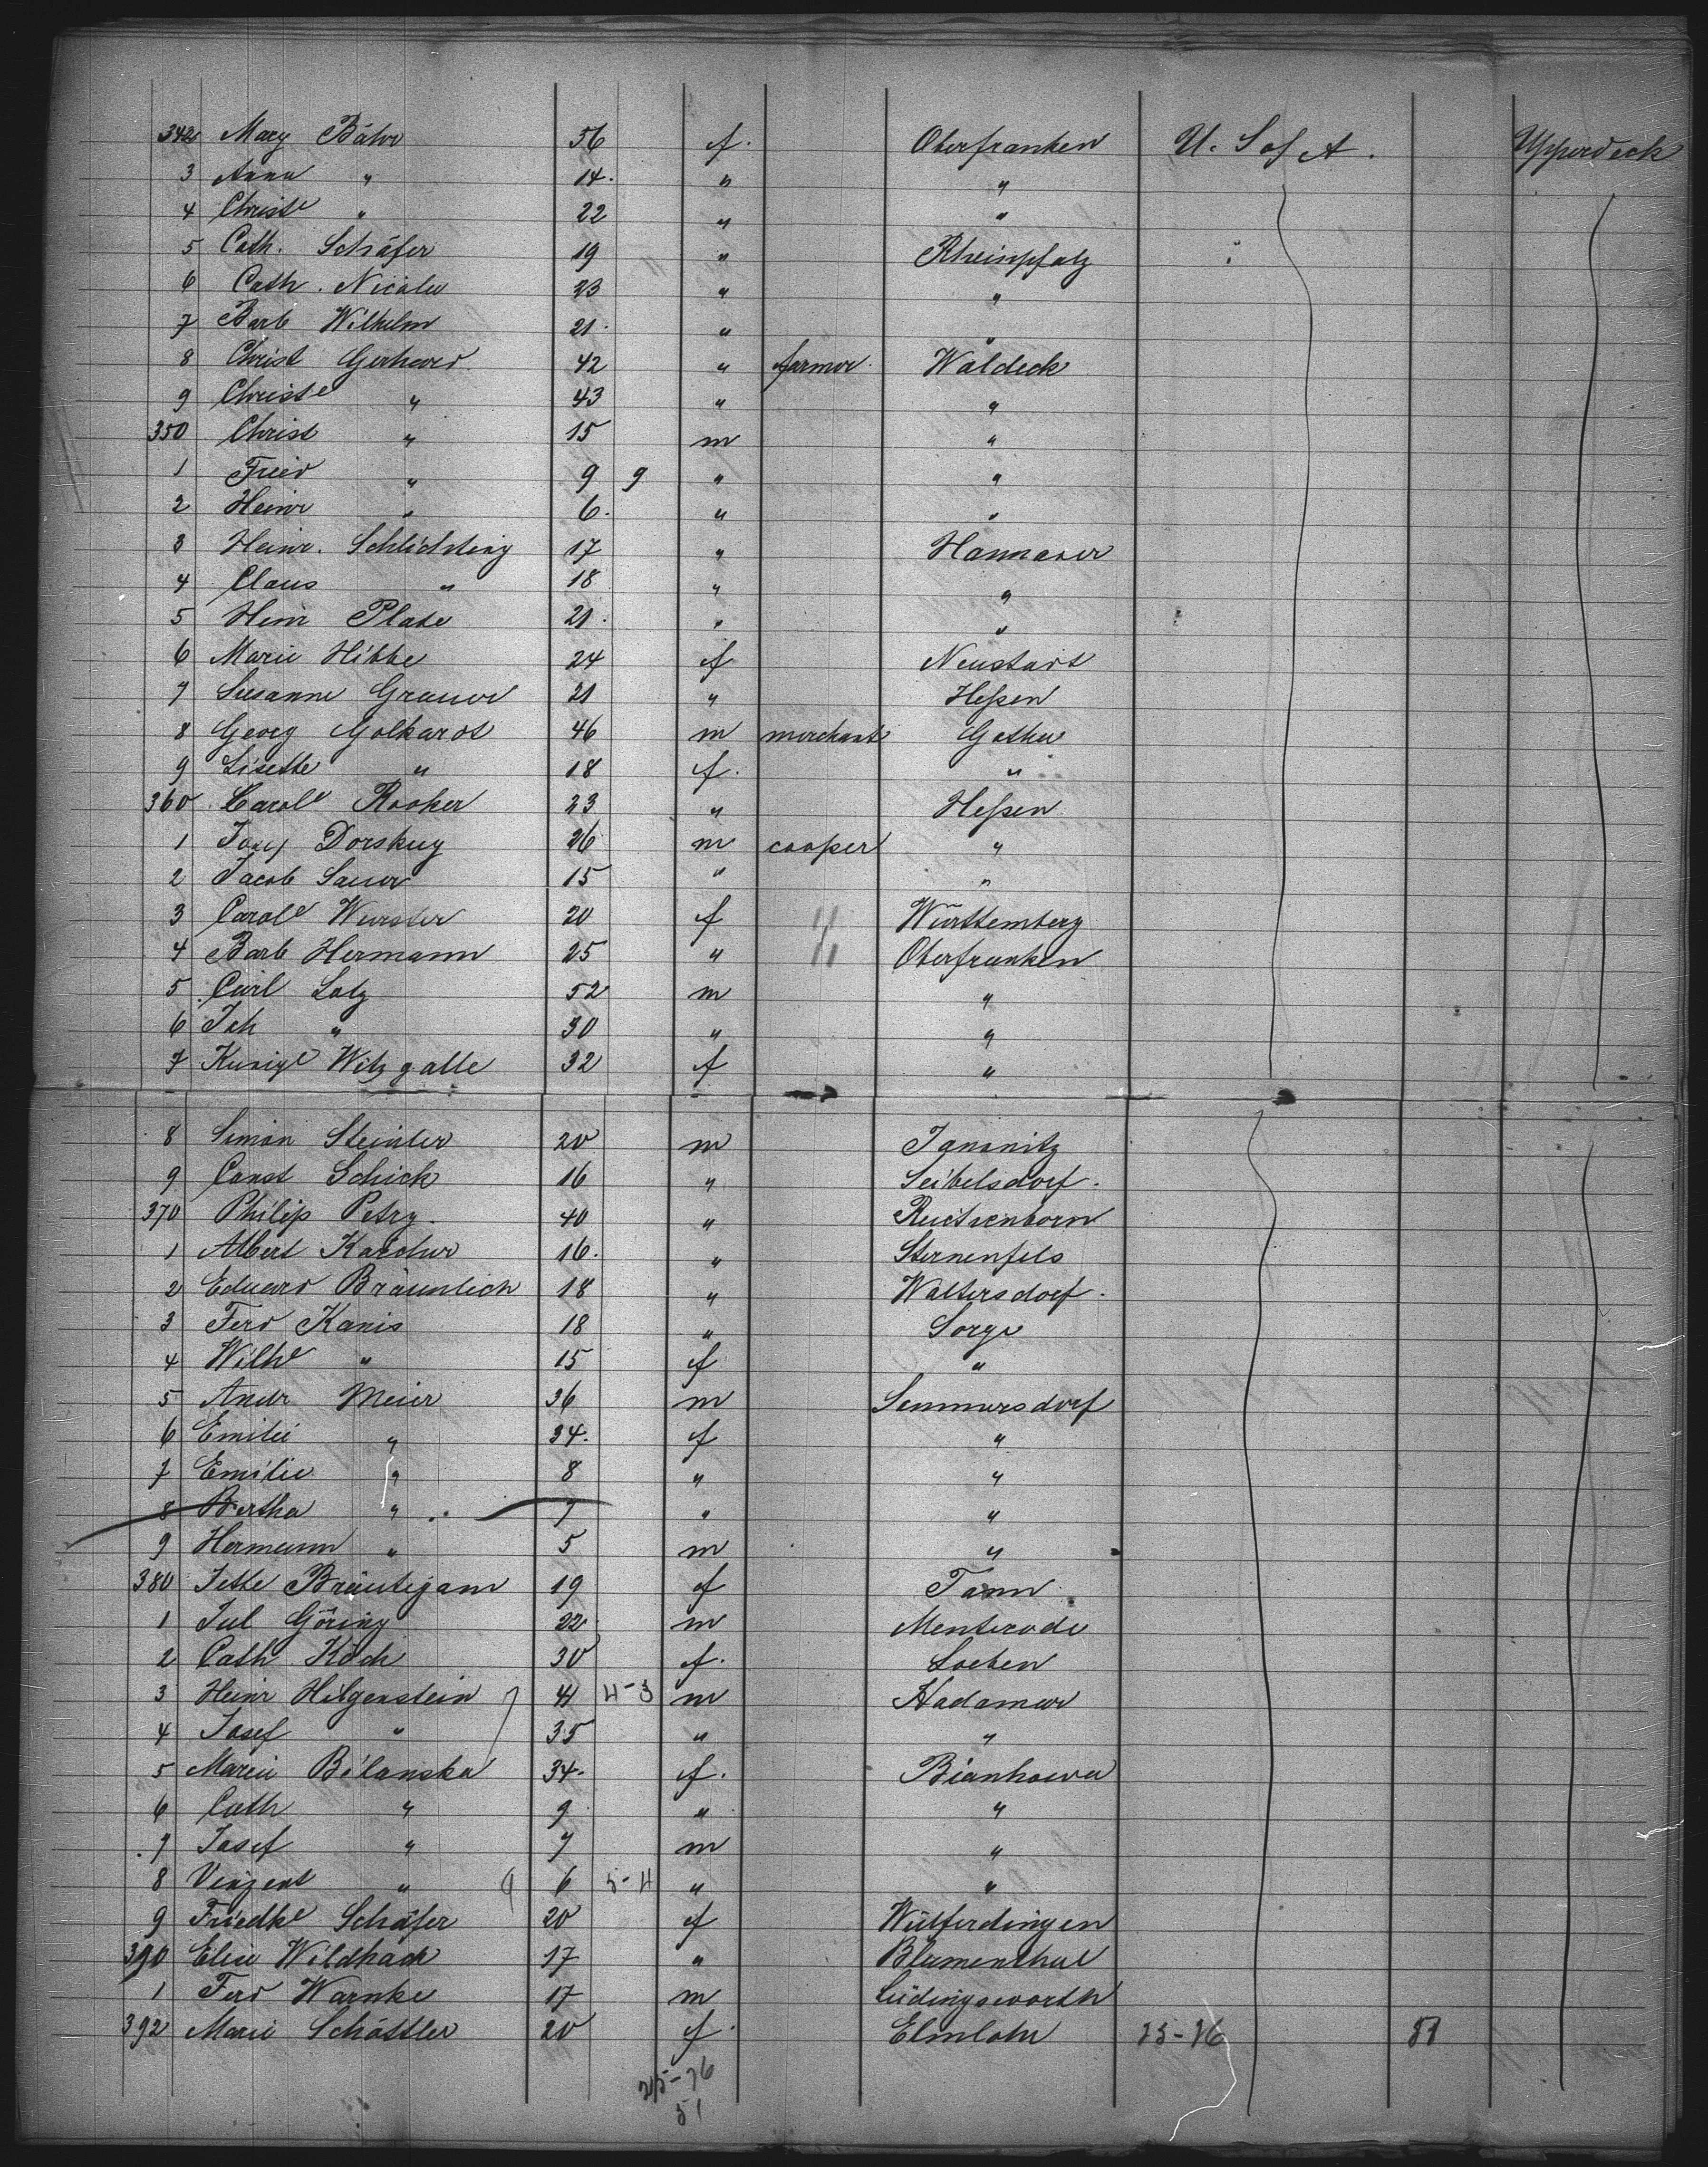 342 Mary Bähr 56 f. Oberfranken U. S of A. Upperdeck
3 Anna " 14. " "
4 Christe " 22 " "
5 Cath. Schäfer 19 " Rheinpfalz
6 Cath. Nicolai 23 " "
7 Barb Wilhelm 21. " "
8 Christ Gerhard 42 " farmer Waldeck
9 Christe " 43 " "
350 Christ " 15 m "
1 Fried " 9 9 " "
2 Heinr " 6. " "
3 Heinr. Schlichting 17 " Hannover
4 Claus " 18 " "
5 Heinr Plate 21. " "
6 Marie Hibbe 24 f Neustadt
7 Susanne Grauer 21 " Heßen
8 Georg Golhardt 46 m merchant Gotha
9 Lisette " 18 f. "
360 Carole Rooker 23 " Heßen
1 Dorskuy 26 m cooper "
2 Jacob Sauer 15 " "
3 Carole Wurster 20 f Württemberg
4 Barb Hermann 25 " Oberfranken
5 Carl Lolz 52 m "
6 Joh " 30 " "
7 Kunige Witzgalle 32 f "
8 Simon Steinler 20 m
9 Const Schick 16 " Seibelsdorf.
370 Philip Petry. 40 "
1 Albert Karcher 16. " Sternenfels
2 Eduard Bräunlich 18 " Waltersdorf.
3 Ferd Kanis 18 " Sorge
4 Wilhe " 15 f "
5 Andr Meier 36 m Sommersdorf
6 Emilie " 34. f "
7 Emilie " 8 " "
8 Bertha " 7 " "
9 Hermann " 5 m "
380 Jette Bräutigam 19 f Tann
1 Jul Göring 22 m Menterode
2 Cath Koch 30 f. Loeben
3 Heinr Hilgenstein 4 4-3 m Hadamar
4 Josef " 35 " "
5 Marie Bilanska 34. f. Biankowa
6 Cath " 9 " "
7 Josef " 7 m "
8 Vinzent " 6 5-4 " "
9 Friedke Schäfer 20 f Wülferdingen
390 Elise Wildhack 17 " Blumenthal
1 Ferd Warnke 17 m Lüdingworth
392 Marie Schöttler 20 f. Elmlohe 25-26 51
25-26
51